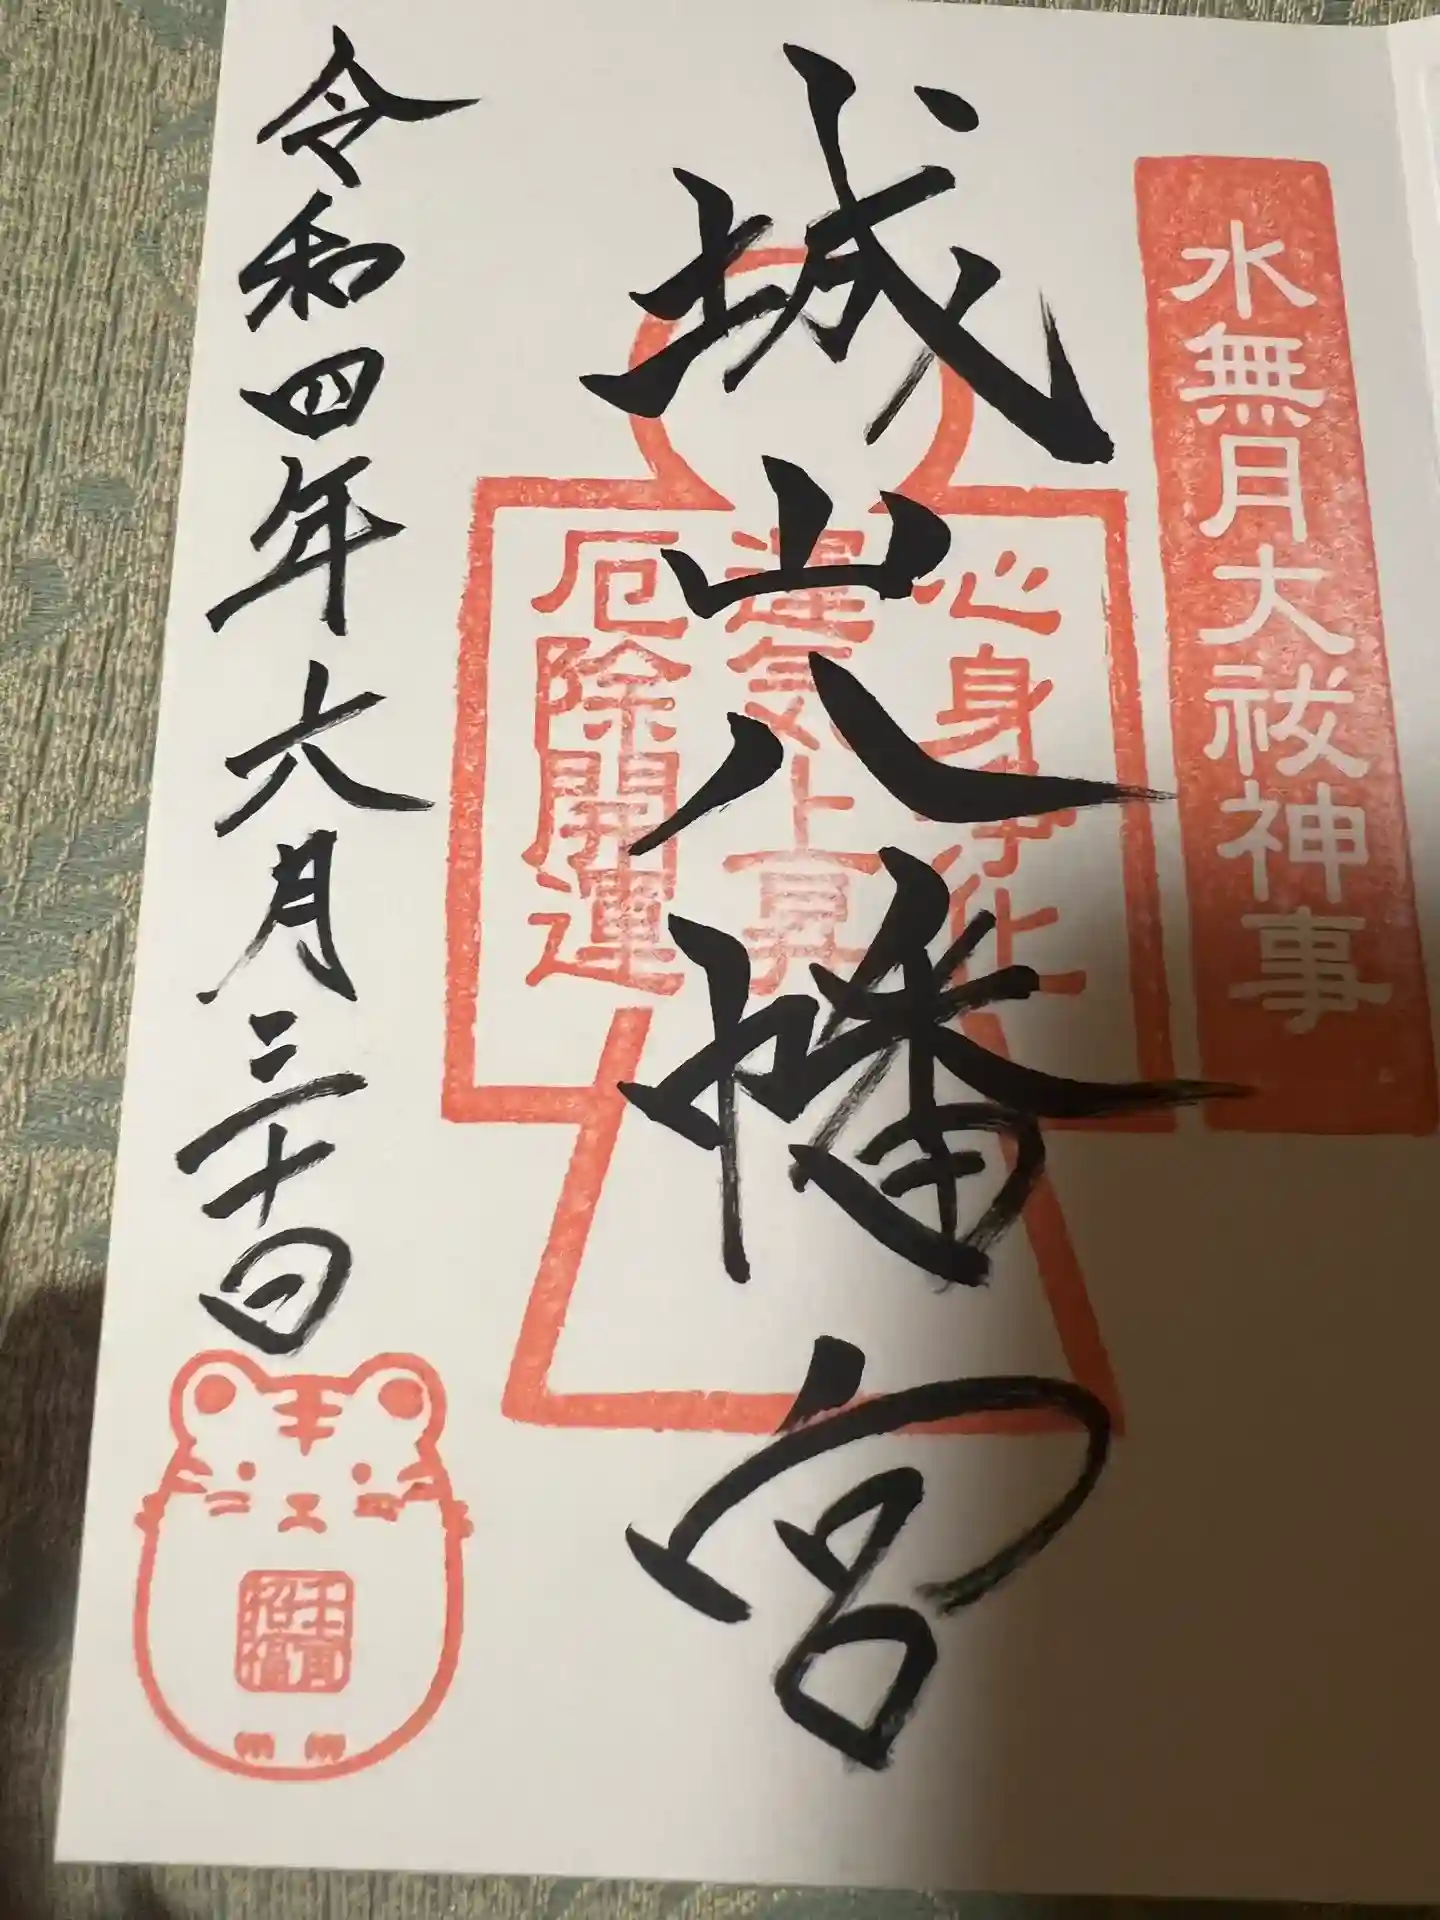 水無月大祓神事
城山八幡宮
心身浄化
運気上昇
厄除開運
令和四年六月三十日
壬寅
招福